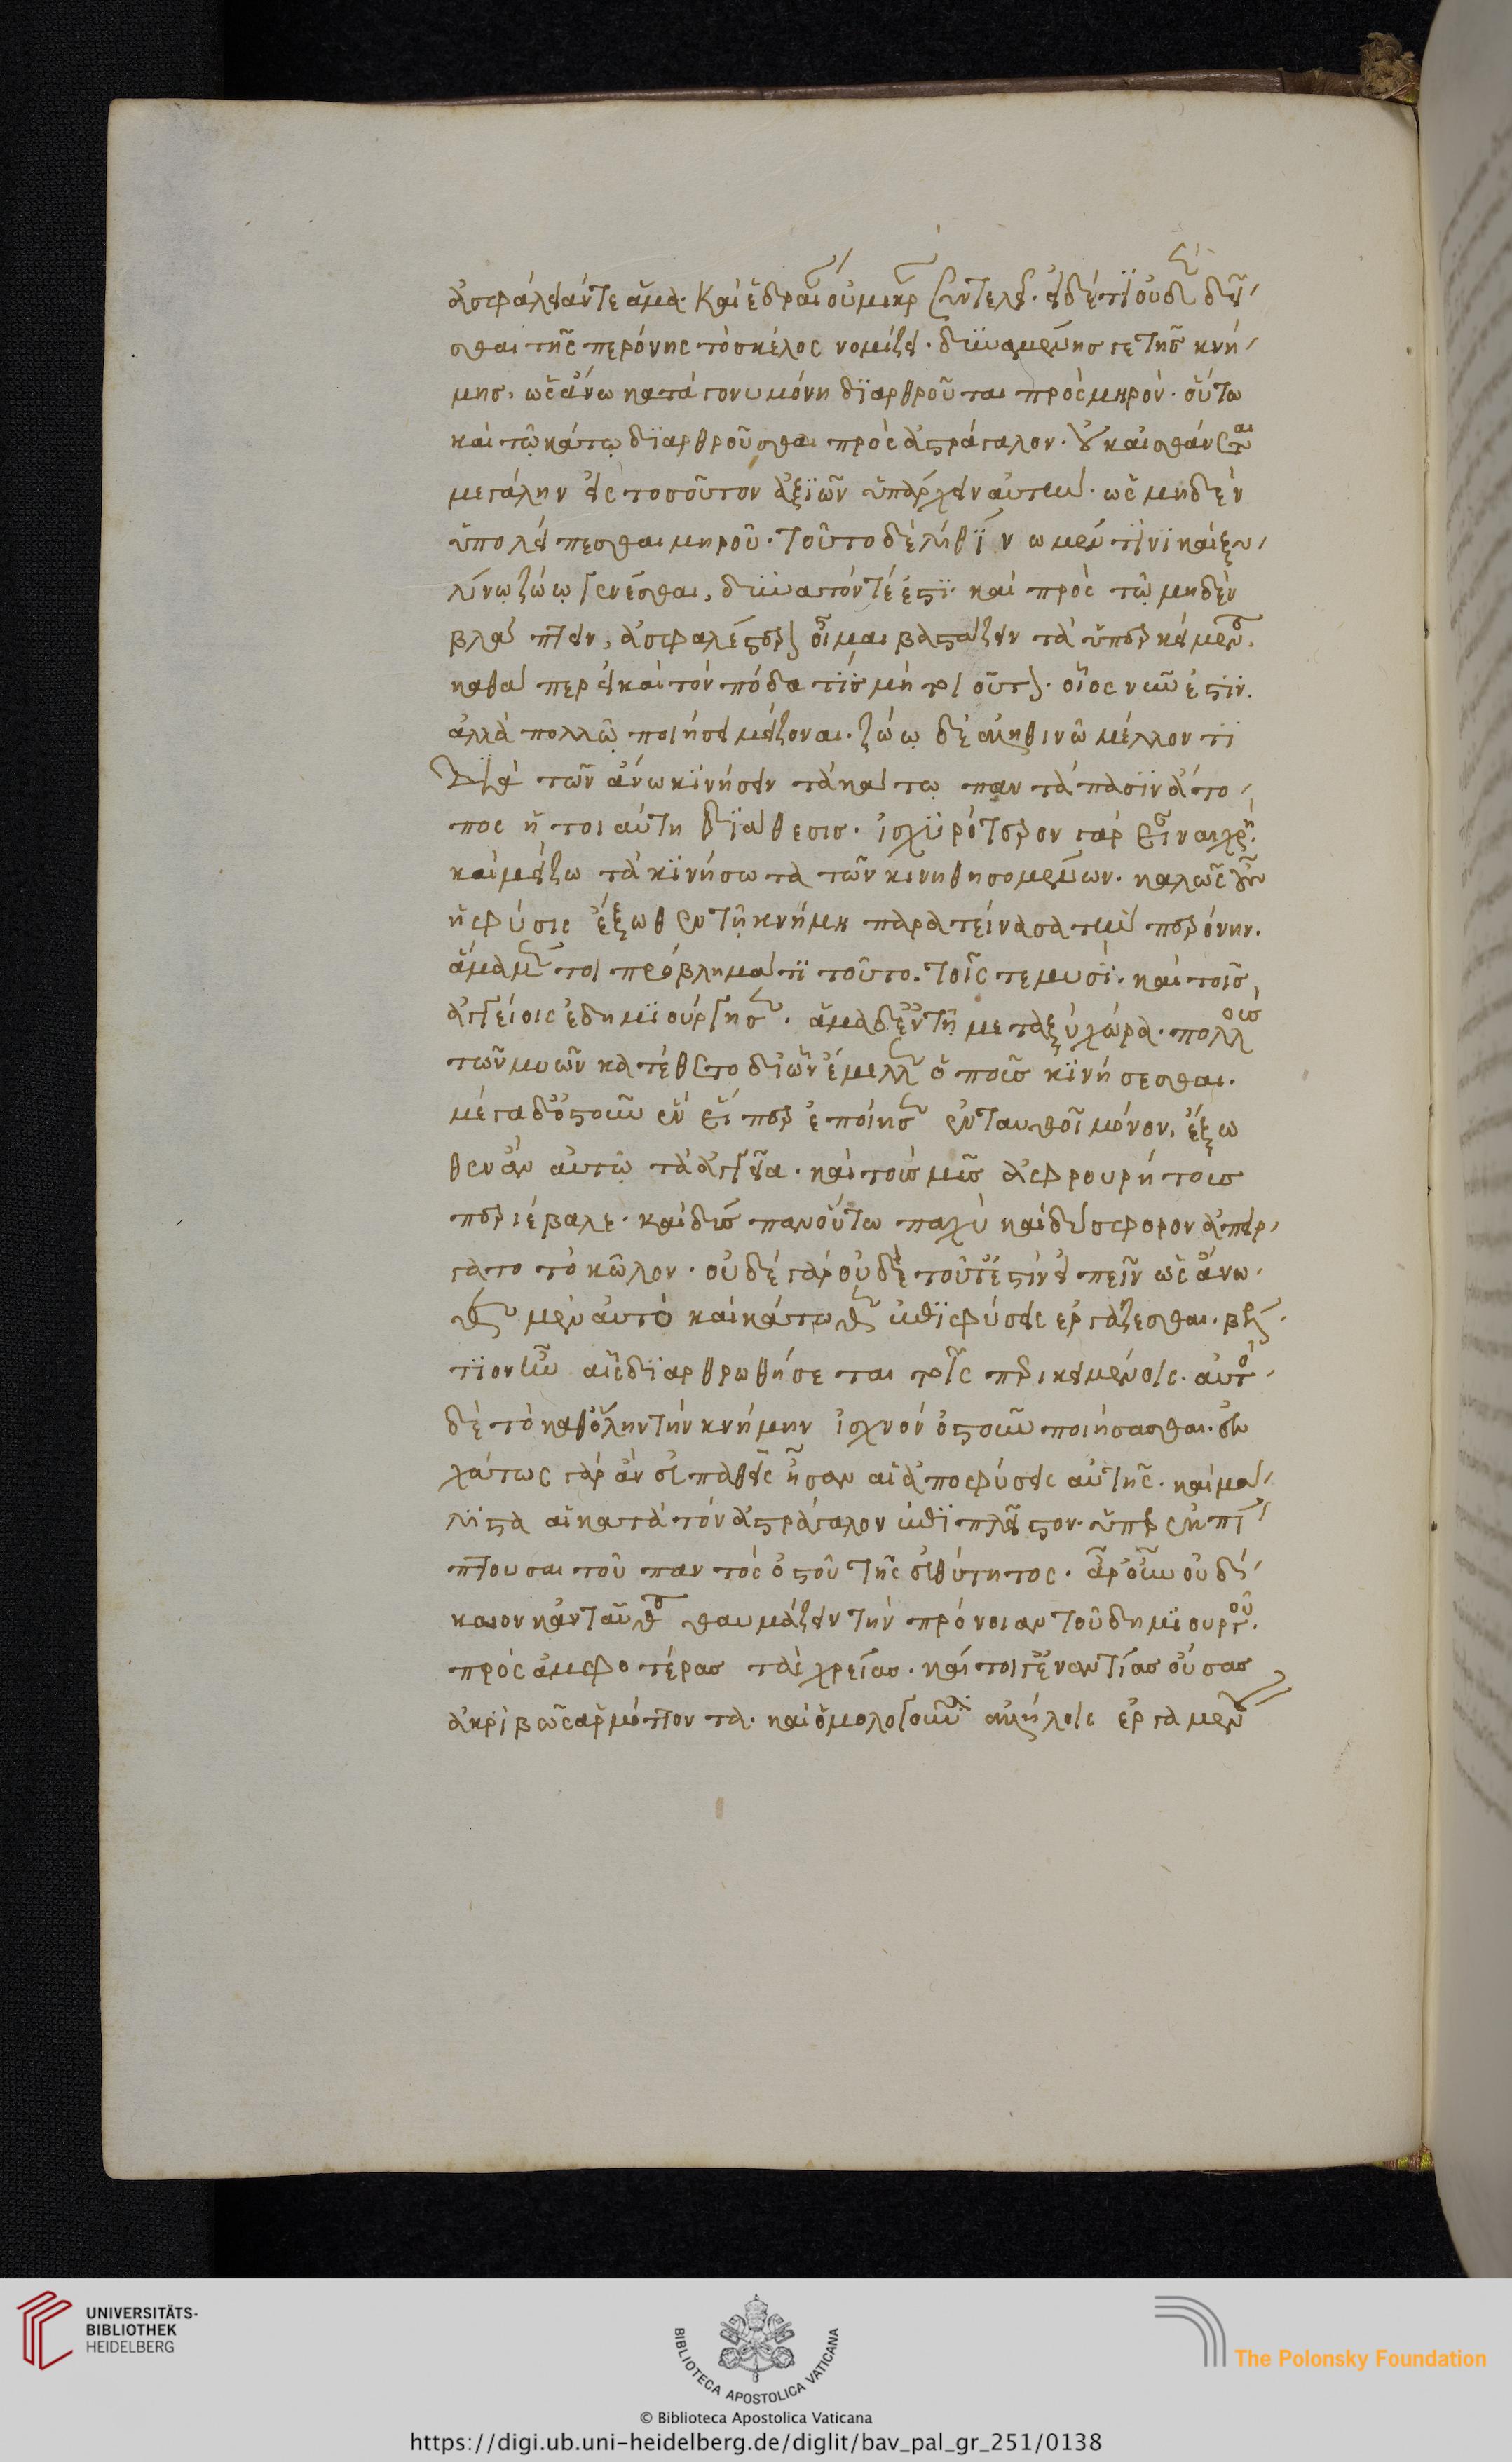 ἀσφάλειάν τε ἅμα. καὶ ἕδραν οὐ μικρὰν συντελεῖ. εἰ δέ τις οὐδὲν δεῖ
σθαι τῆς περόνης τὸ σκέλος νομίζει. δυναμένης γε τῆς κνή
μης, ὡς ἄνω κατὰ γόνυ μόνη διαρθροῦται πρὸς μηρόν. οὕτω
καὶ τῷ κάτω διαρθροῦσθαι πρὸς ἀστράγαλον. οὐκ αἰσθάνεται
μεγάλην εἰς τοσοῦτον ἀξιῶν ὑπάρχειν αὐτὴν. ὡς μηδὲν
ὑπολείπεσθαι μηροῦ. τοῦτο δὲ λιθίνω μέν τινι καὶ ξυ
λίνῳ ζώῳ γενέσθαι, δυνατόν τέ ἐστι. καὶ πρὸς τῷ μηδὲν
βλάπτειν, ἀσφαλέστερον οἶμαι βαστάζειν τὰ ὑπερκείμενα.
καθάπερ εἰ καὶ τὸν πόδα τις μὴ τοιοῦτον. οἷος νῦν ἐστιν.
ἀλλὰ πολλῷ ποιήσει μείζονα. ζώῳ δὲ ἀληθινῷ μέλλοντι
διὰ τῶν ἄνω κινήσειν τὰ κάτω παντάπασιν ἄτο
πος ἡ τοιαύτη διάθεσις. ἰσχυρότερον γὰρ εἶναι χρὴ
καὶ μείζω τὰ κινήσωντα τῶν κινηθησομένων. καλῶς οὖν
ἡ φύσις ἔξωθεν τῇ κνήμῃ παρατείνασα τὴν περόνην.
ἅμα μέν τοι προβλήματι τοῦτο. τοῖς τε μυσί. καὶ τοῖς
ἀγγείοις ἐδημιούργησεν. ἅμα δὲ ἐν τῇ μεταξὺ χώρᾳ. πολλοὺς
τῶν μυῶν κατέθετο δι' ὧν ἔμελλεν ὁ ποῦς κινήσεσθαι.
μέγα δ' ὀστοῦν ἓν εἴπερ ἐποίησεν ἐνταυθοῖ μόνον, ἔξω
θεν ἂν αὐτῷ τὰ ἀγγεῖα. καὶ τοὺς μῦς ἀφρουρήτους
περιέβαλε. καὶ δὶς πανούτω παχὺ καὶ δύσφορον ἀπειρ
γατο τὸ κῶλον. οὐδὲ γὰρ οὐδὲ τοῦτ' ἔστιν εἰπεῖν ὡς ἄνω
θεν μὲν αὐτὸ καὶ κάτωθεν ἐπιφύσεις ἐργάζεσθαι. βέλ
τιον ὧν αἷς διαρθρωθήσεται τοῖς περικειμένοις. αὐτὸ
δὲ τὸ καθ' ὅλην τὴν κνήμην ἰσχνὸν ὀστοῦν ποιήσασθαι. οὕτω
χάτως γὰρ ἂν εὐπαθεῖς ἦσαν αἱ ἀποφύσεις αὐτῆς. καὶ μά
λιστα αἱ κατὰ τὸν ἀστράγαλον ἐπιπλεῖστον ὑπερεκπί
πτουσαι τοῦ παντὸς ὀστοῦ τῆς εὐθύτητος. ἆρ' οὖν οὐ δί
καιον κἀνταῦθα θαυμάζειν τὴν πρόνοιαν τοῦ δημιουργοῦ.
πρὸς ἀμφοτέρας τὰς χρείας. καίτοι γ' ἐναντίας οὔσας
ἀκριβῶς ἁρμόττοντα. καὶ ὁμολογοῦντα ἀλλήλοις ἐργαμένου
UNIVERSITÄTS-
BIBLIOTHEK
HEIDELBERG
BIBLIOTECA APOSTOLICA VATICANA
© Biblioteca Apostolica Vaticana
The Polonsky Foundation
https://digi.ub.uni-heidelberg.de/diglit/bav_pal_gr_251/0138